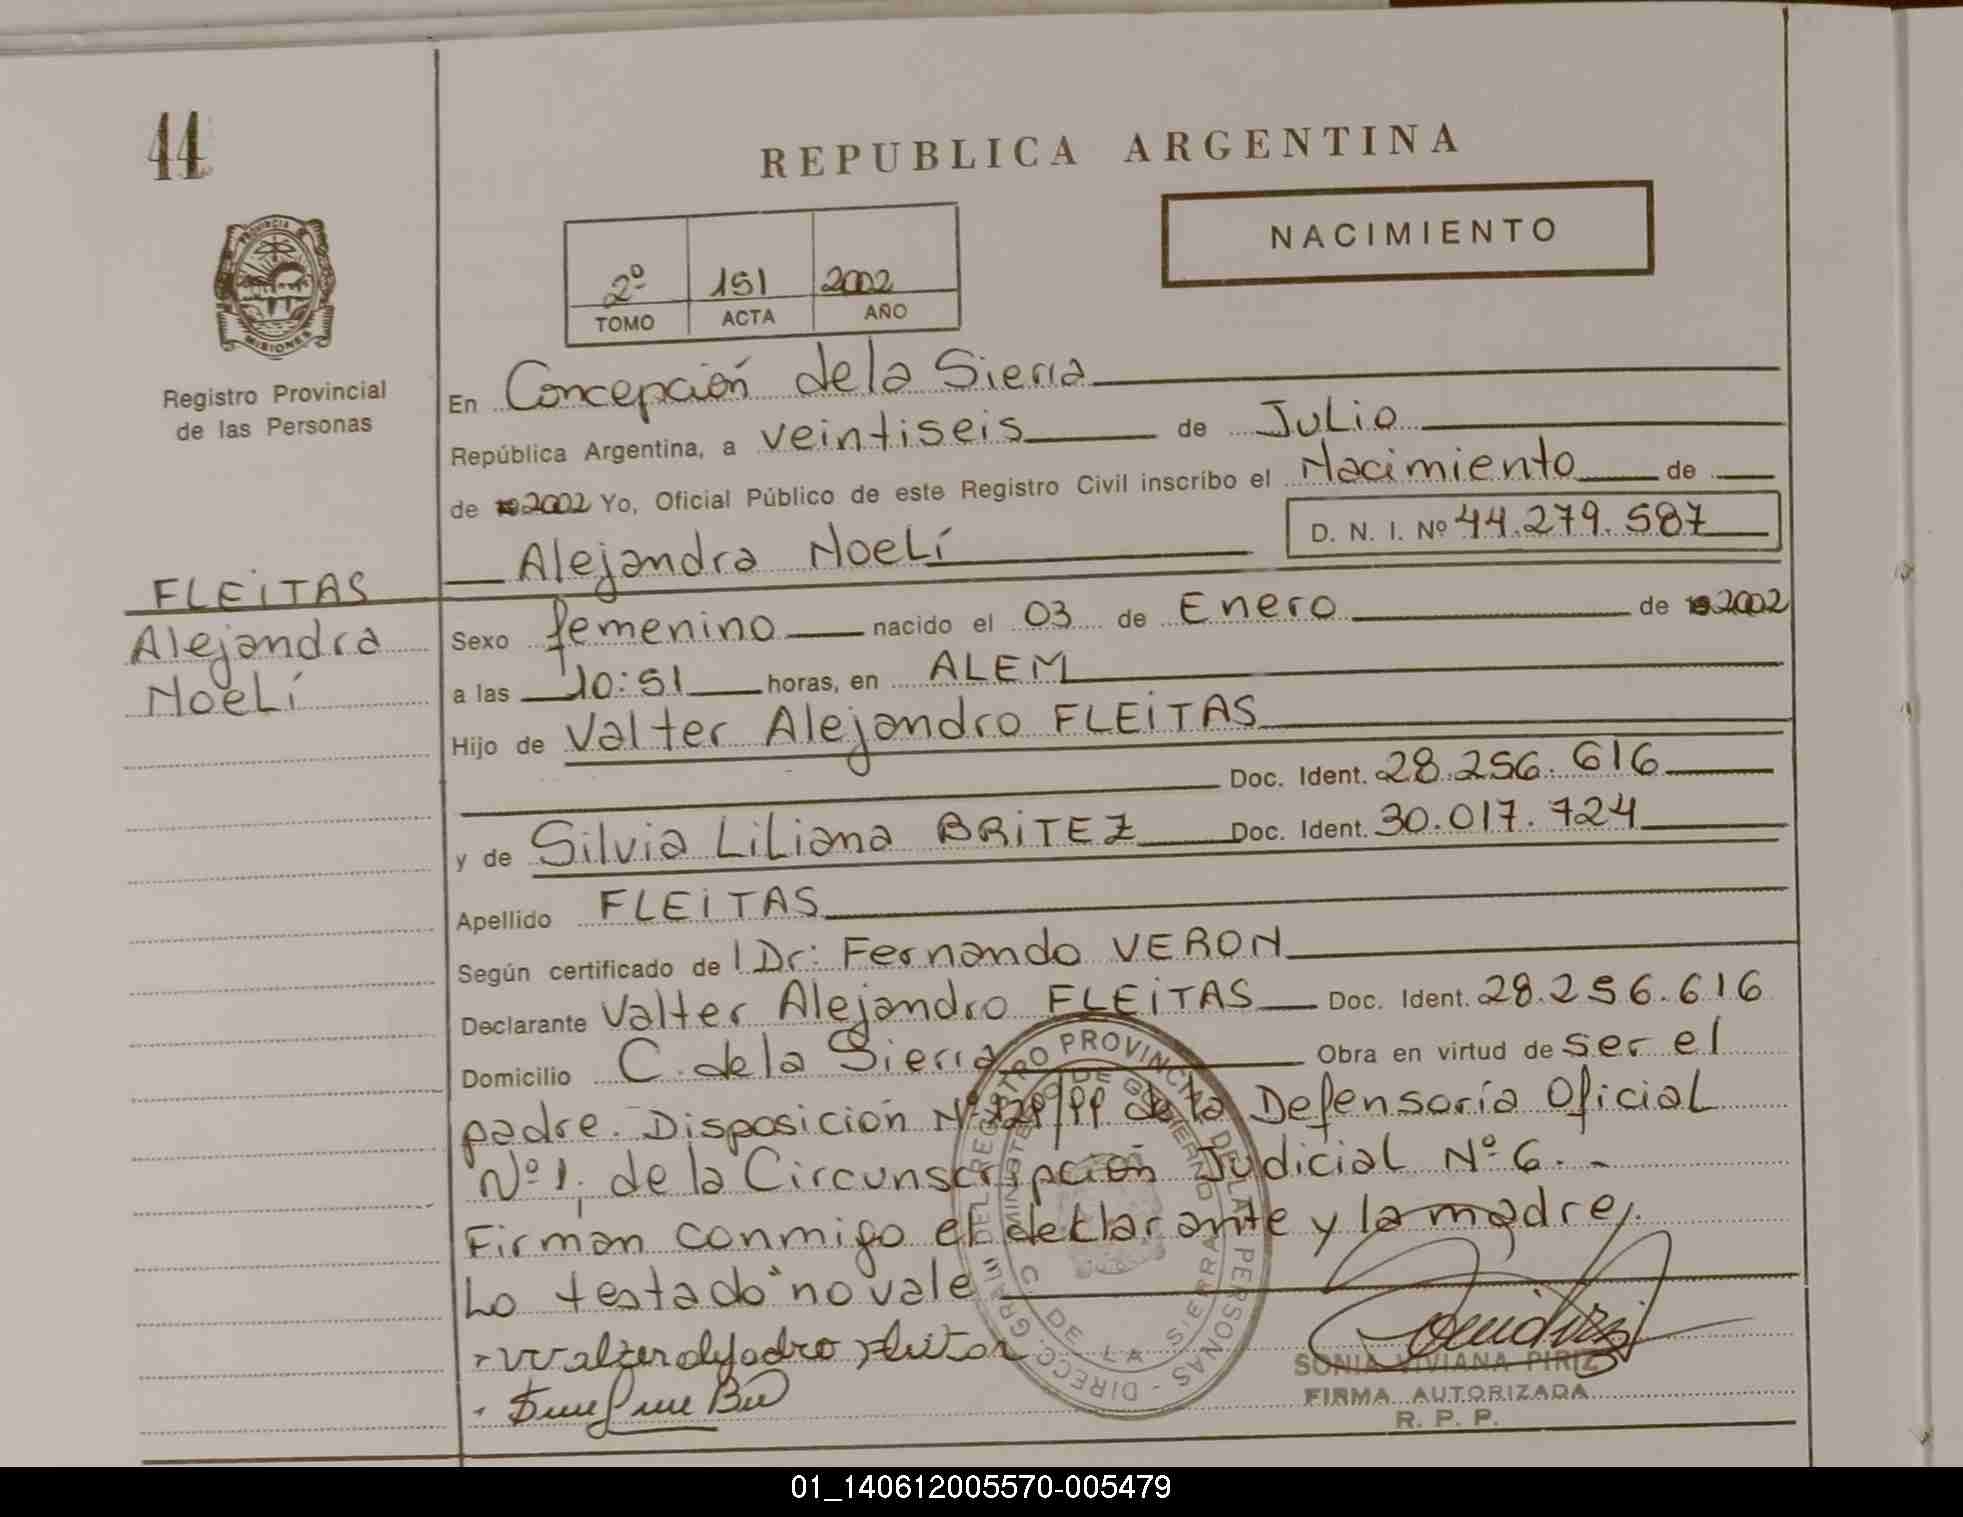 44
REPUBLICA ARGENTINA
NACIMIENTO
2º 151 2002
TOMO ACTA AÑO
PROVINCIA DE
MISIONES
Registro Provincial
de las Personas
En Concepción de la Sierra
República Argentina, a veintiseis de Julio
de 2002 Yo, Oficial Público de este Registro Civil inscribo el Nacimiento de
D. N. I. Nº 44.279.587
Alejandra Noelí
FLEiTAS
Alejandra
Noelí
Sexo femenino nacido el 03 de Enero de 2002
a las 10:51 horas, en ALEM
Hijo de Valter Alejandro FLEiTAS
Doc. Ident. 28.256.616
y de Silvia Liliana BRiTEZ Doc. Ident. 30.017.724
Apellido FLEiTAS
Según certificado de l Dr: Fernando VERON
Declarante Valter Alejandro FLEiTAS Doc. Ident. 28.256.616
Domicilio C. de la Sierra Obra en virtud de ser el
padre. Disposición Nº de la Defensoría Oficial
Nº 1, de la Circunscripción Judicial Nº 6.-
Firman conmigo el declarante y la madre.
Lo testado "no vale
Walter
SONIA VIVIANA PIRIZ
FIRMA AUTORIZADA
R. P. P.
DIRECC. GRAL. DEL REGISTRO PROVINCIAL DE LAS PERSONAS
MINISTERIO DE GOBIERNO
C. DE LA SIERRA
01_140612005570-005479